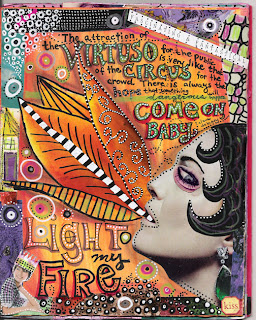 The attraction of
the VIRTUSO for the public
is very like that
of the CIRCUS for the
crowd. There is always the
HOPE that something
dangerous will
COME ON
BABY
LIGHT
my
FIRE
kiss